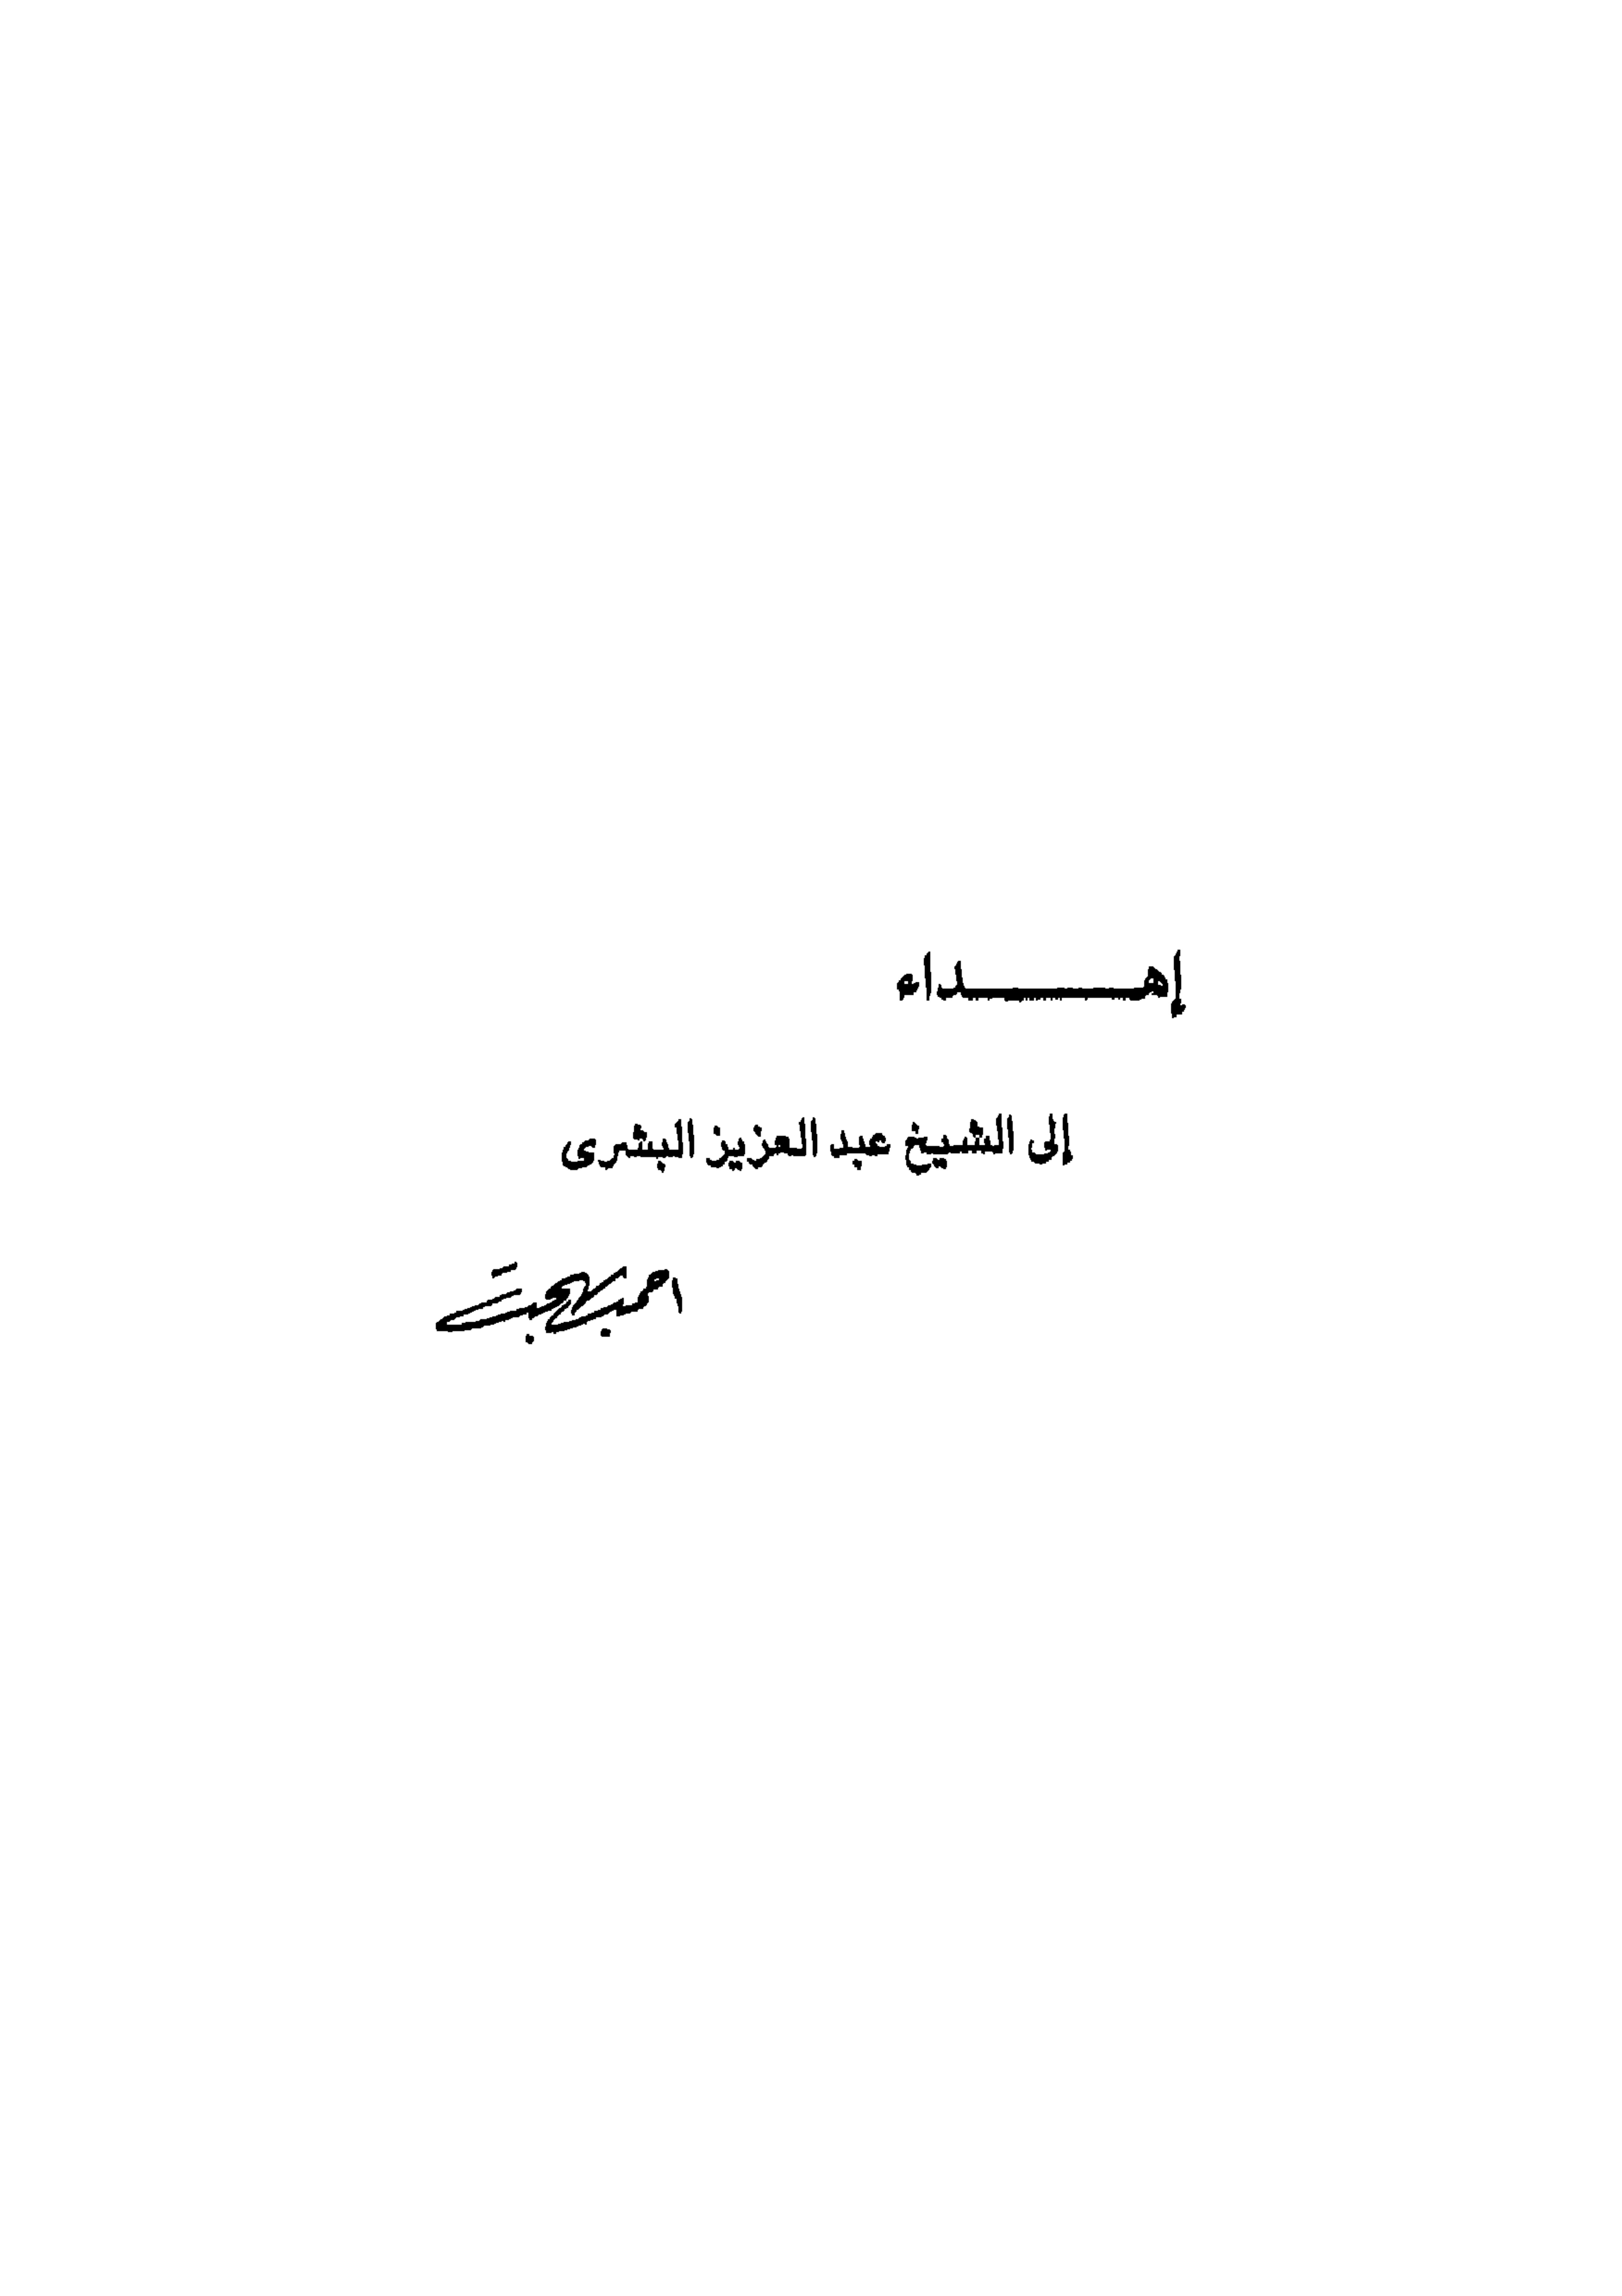 إهــــــداء
إلى الشيخ عبد العزيز البشرى
احمد بهجت